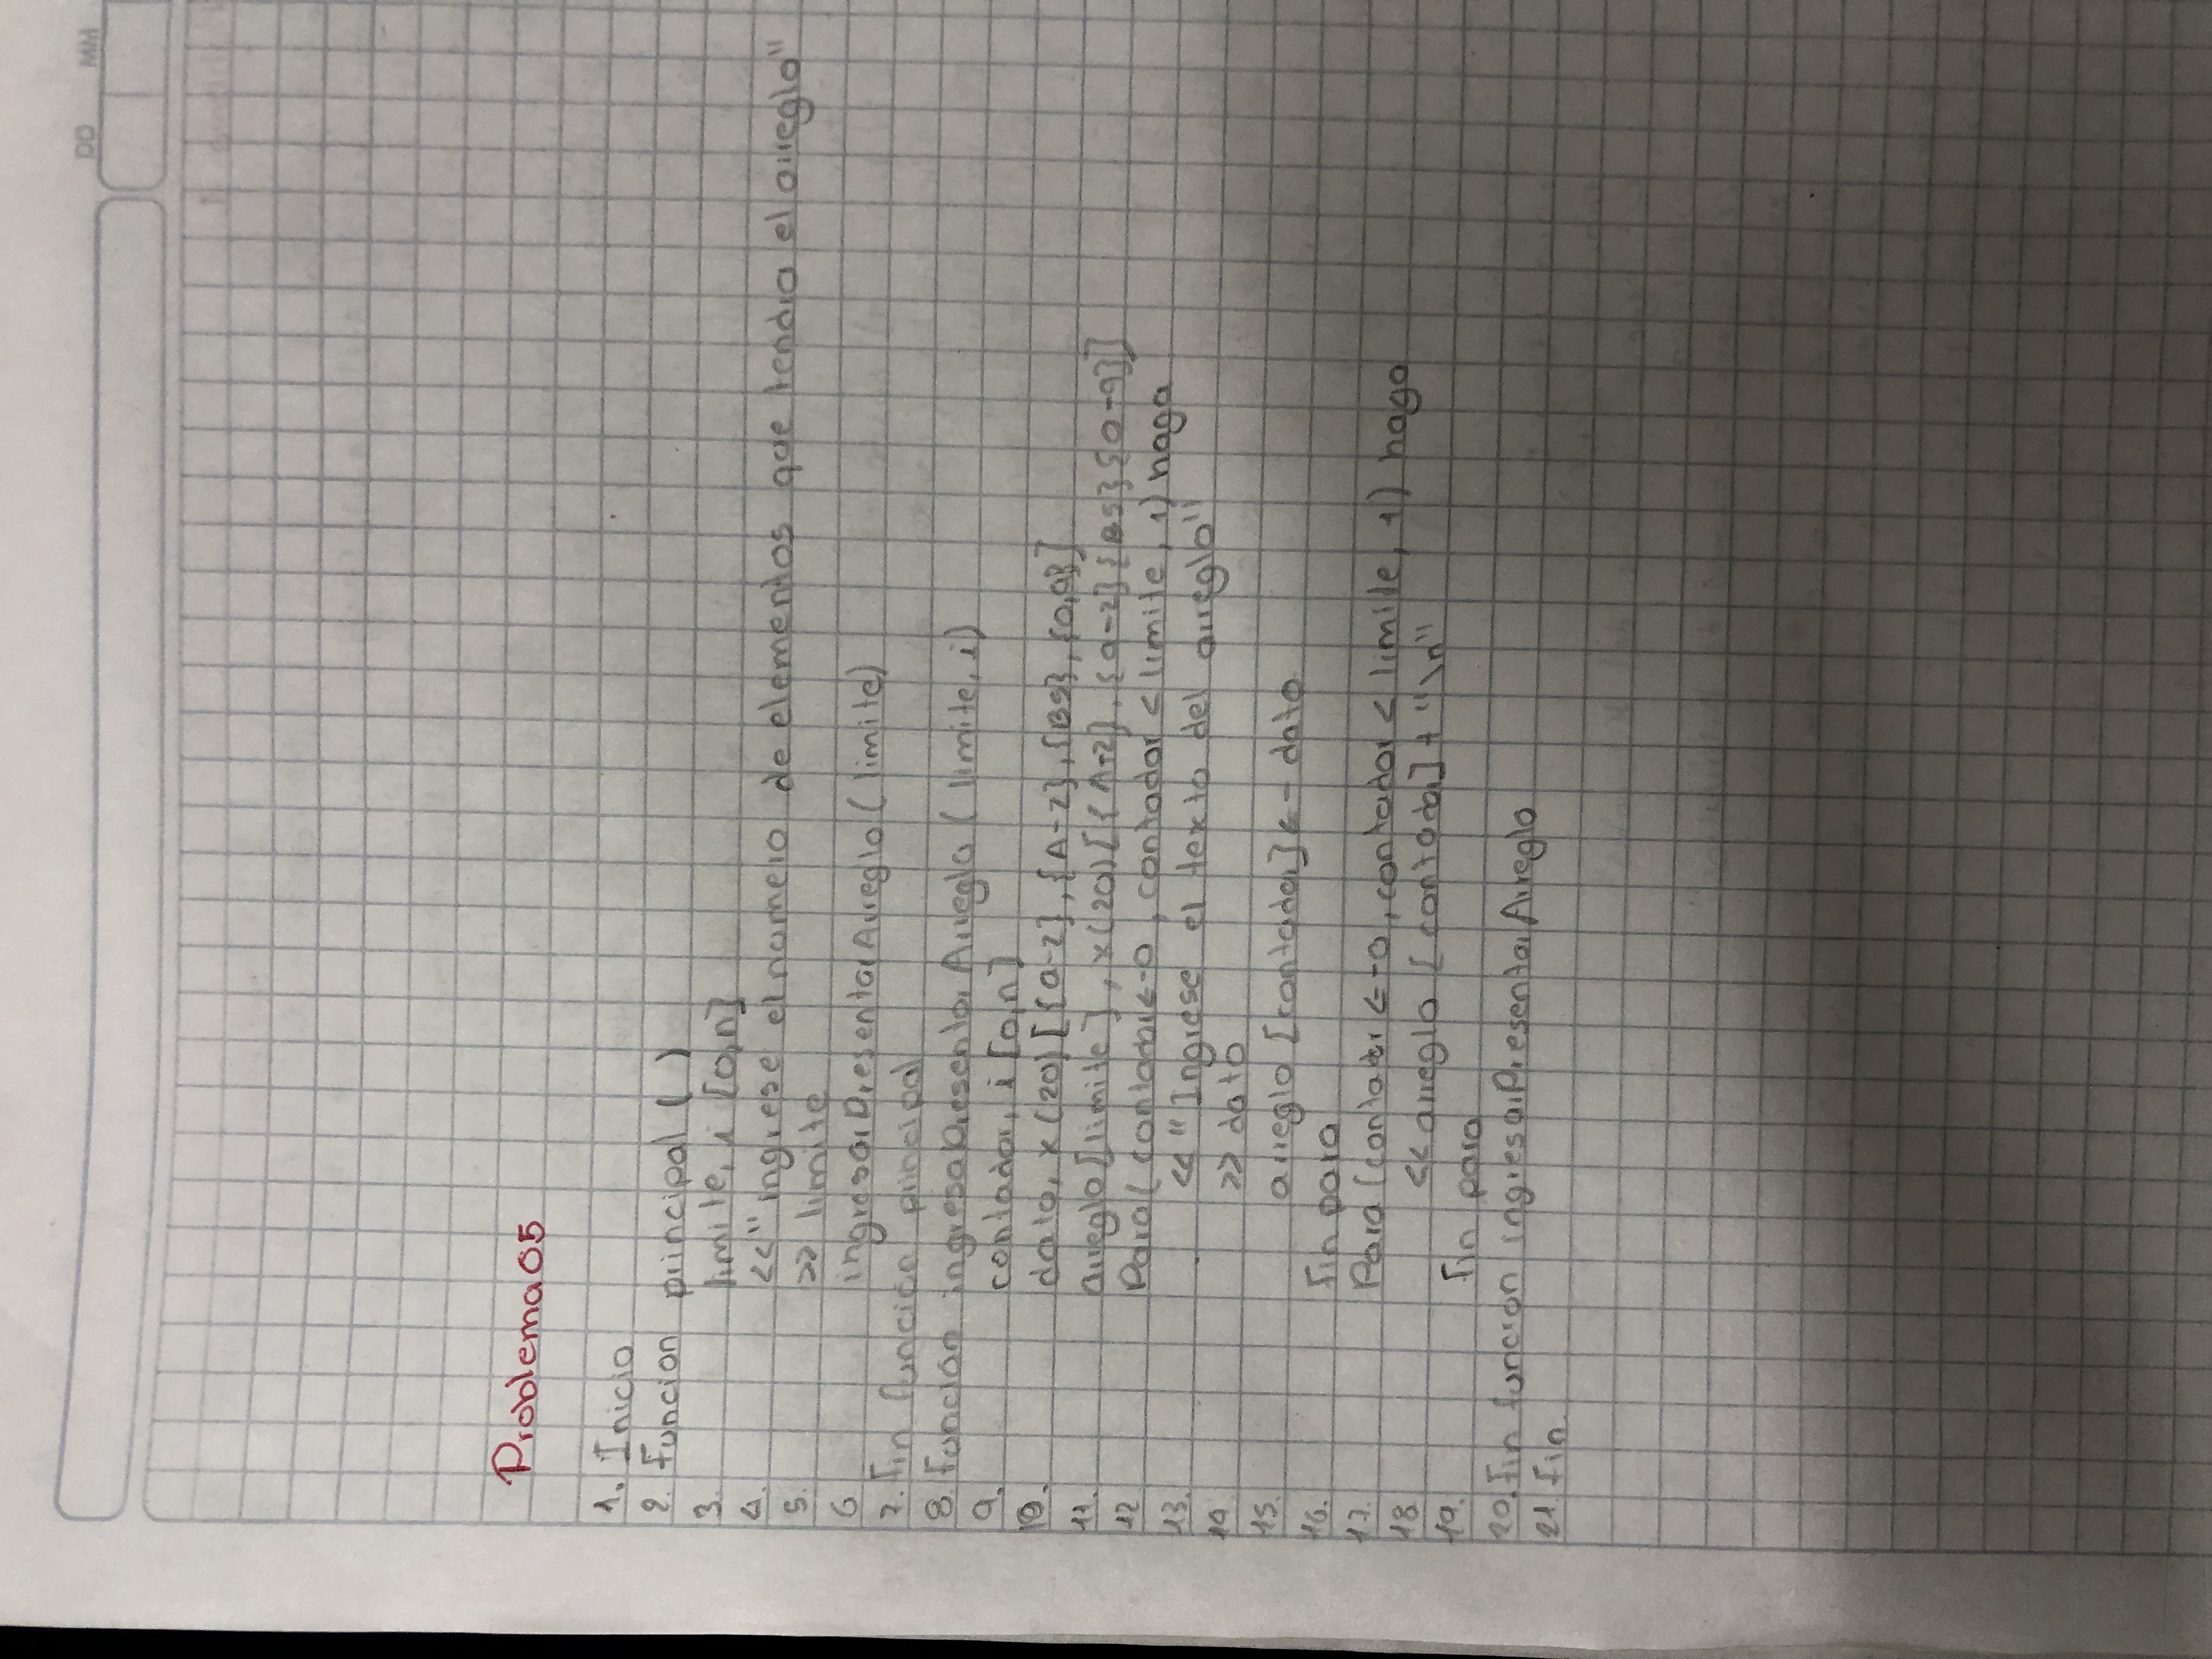 DD MM
Problema 05
1. Inicio
2. Funcion principal ( )
3. limite, i [0,n]
4. <<"ingrese el numero de elementos que tendra el arreglo"
5. >> limite
6 ingresarPresentarArreglo (limite)
7. Fin función principal
8. Función ingresaPresentar Arreglo (limite, i)
9. contador, i [0,n]
10. dato, x (20) [{a-z}, {A-Z}, {BS}, {0,9}]
11. arreglo [limite], x (20) [{A-Z}, {a-z} {BS} {0-9}]
12 Para (contador <-0, contador < limite, 1) haga
13. << "Ingrese el texto del arreglo"
14 >> dato
15. arreglo [contador] <- dato
16. Fin para
17. Para (contador <-0, contador < limite, 1) haga
18 << arreglo [contador] + "\n"
19. Fin para
20. Fin funcion ingresarPresentar Arreglo
21 Fin